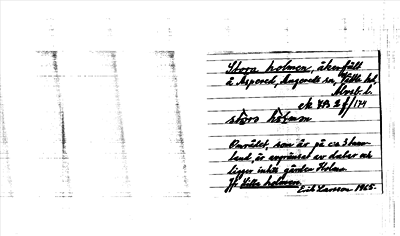 Stora holmen, åkerfält
2 Aspered, Angereds sn, Vättle hd,
Älvsb. l.
ek XB 2f/174
stòrə hòlmən
Området, som är på c:a 3 tunn-
land, är avgränsat av diken och
ligger intill gården Holmen.
Jfr Lilla holmen.
Erik Larsson 1965.